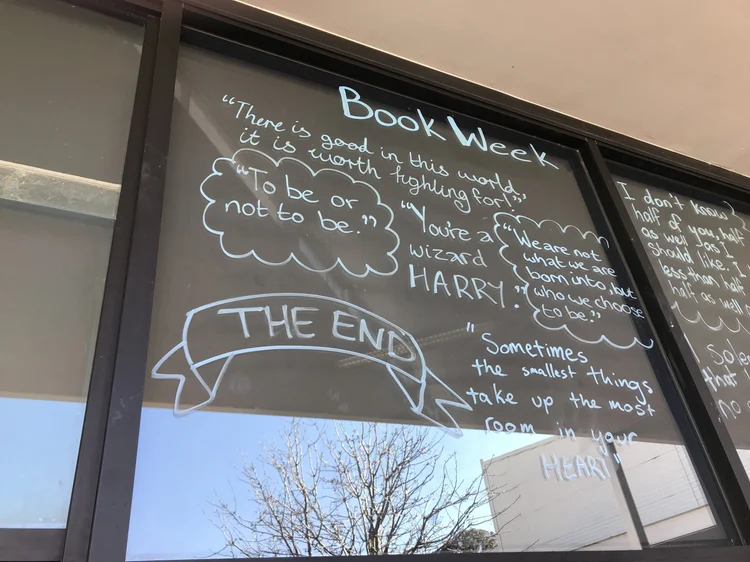 Book Week
"There is good in this world,
it is worth fighting for!"
"To be or
not to be."
"You're a
wizard
HARRY."
"We are not
what we are
born into, but
who we choose
to be."
THE END
"Sometimes
the smallest things
take up the most
room in your
HEART"
I don't know
half of you half
as well as I
should like. I
less than half
half as well
that
no